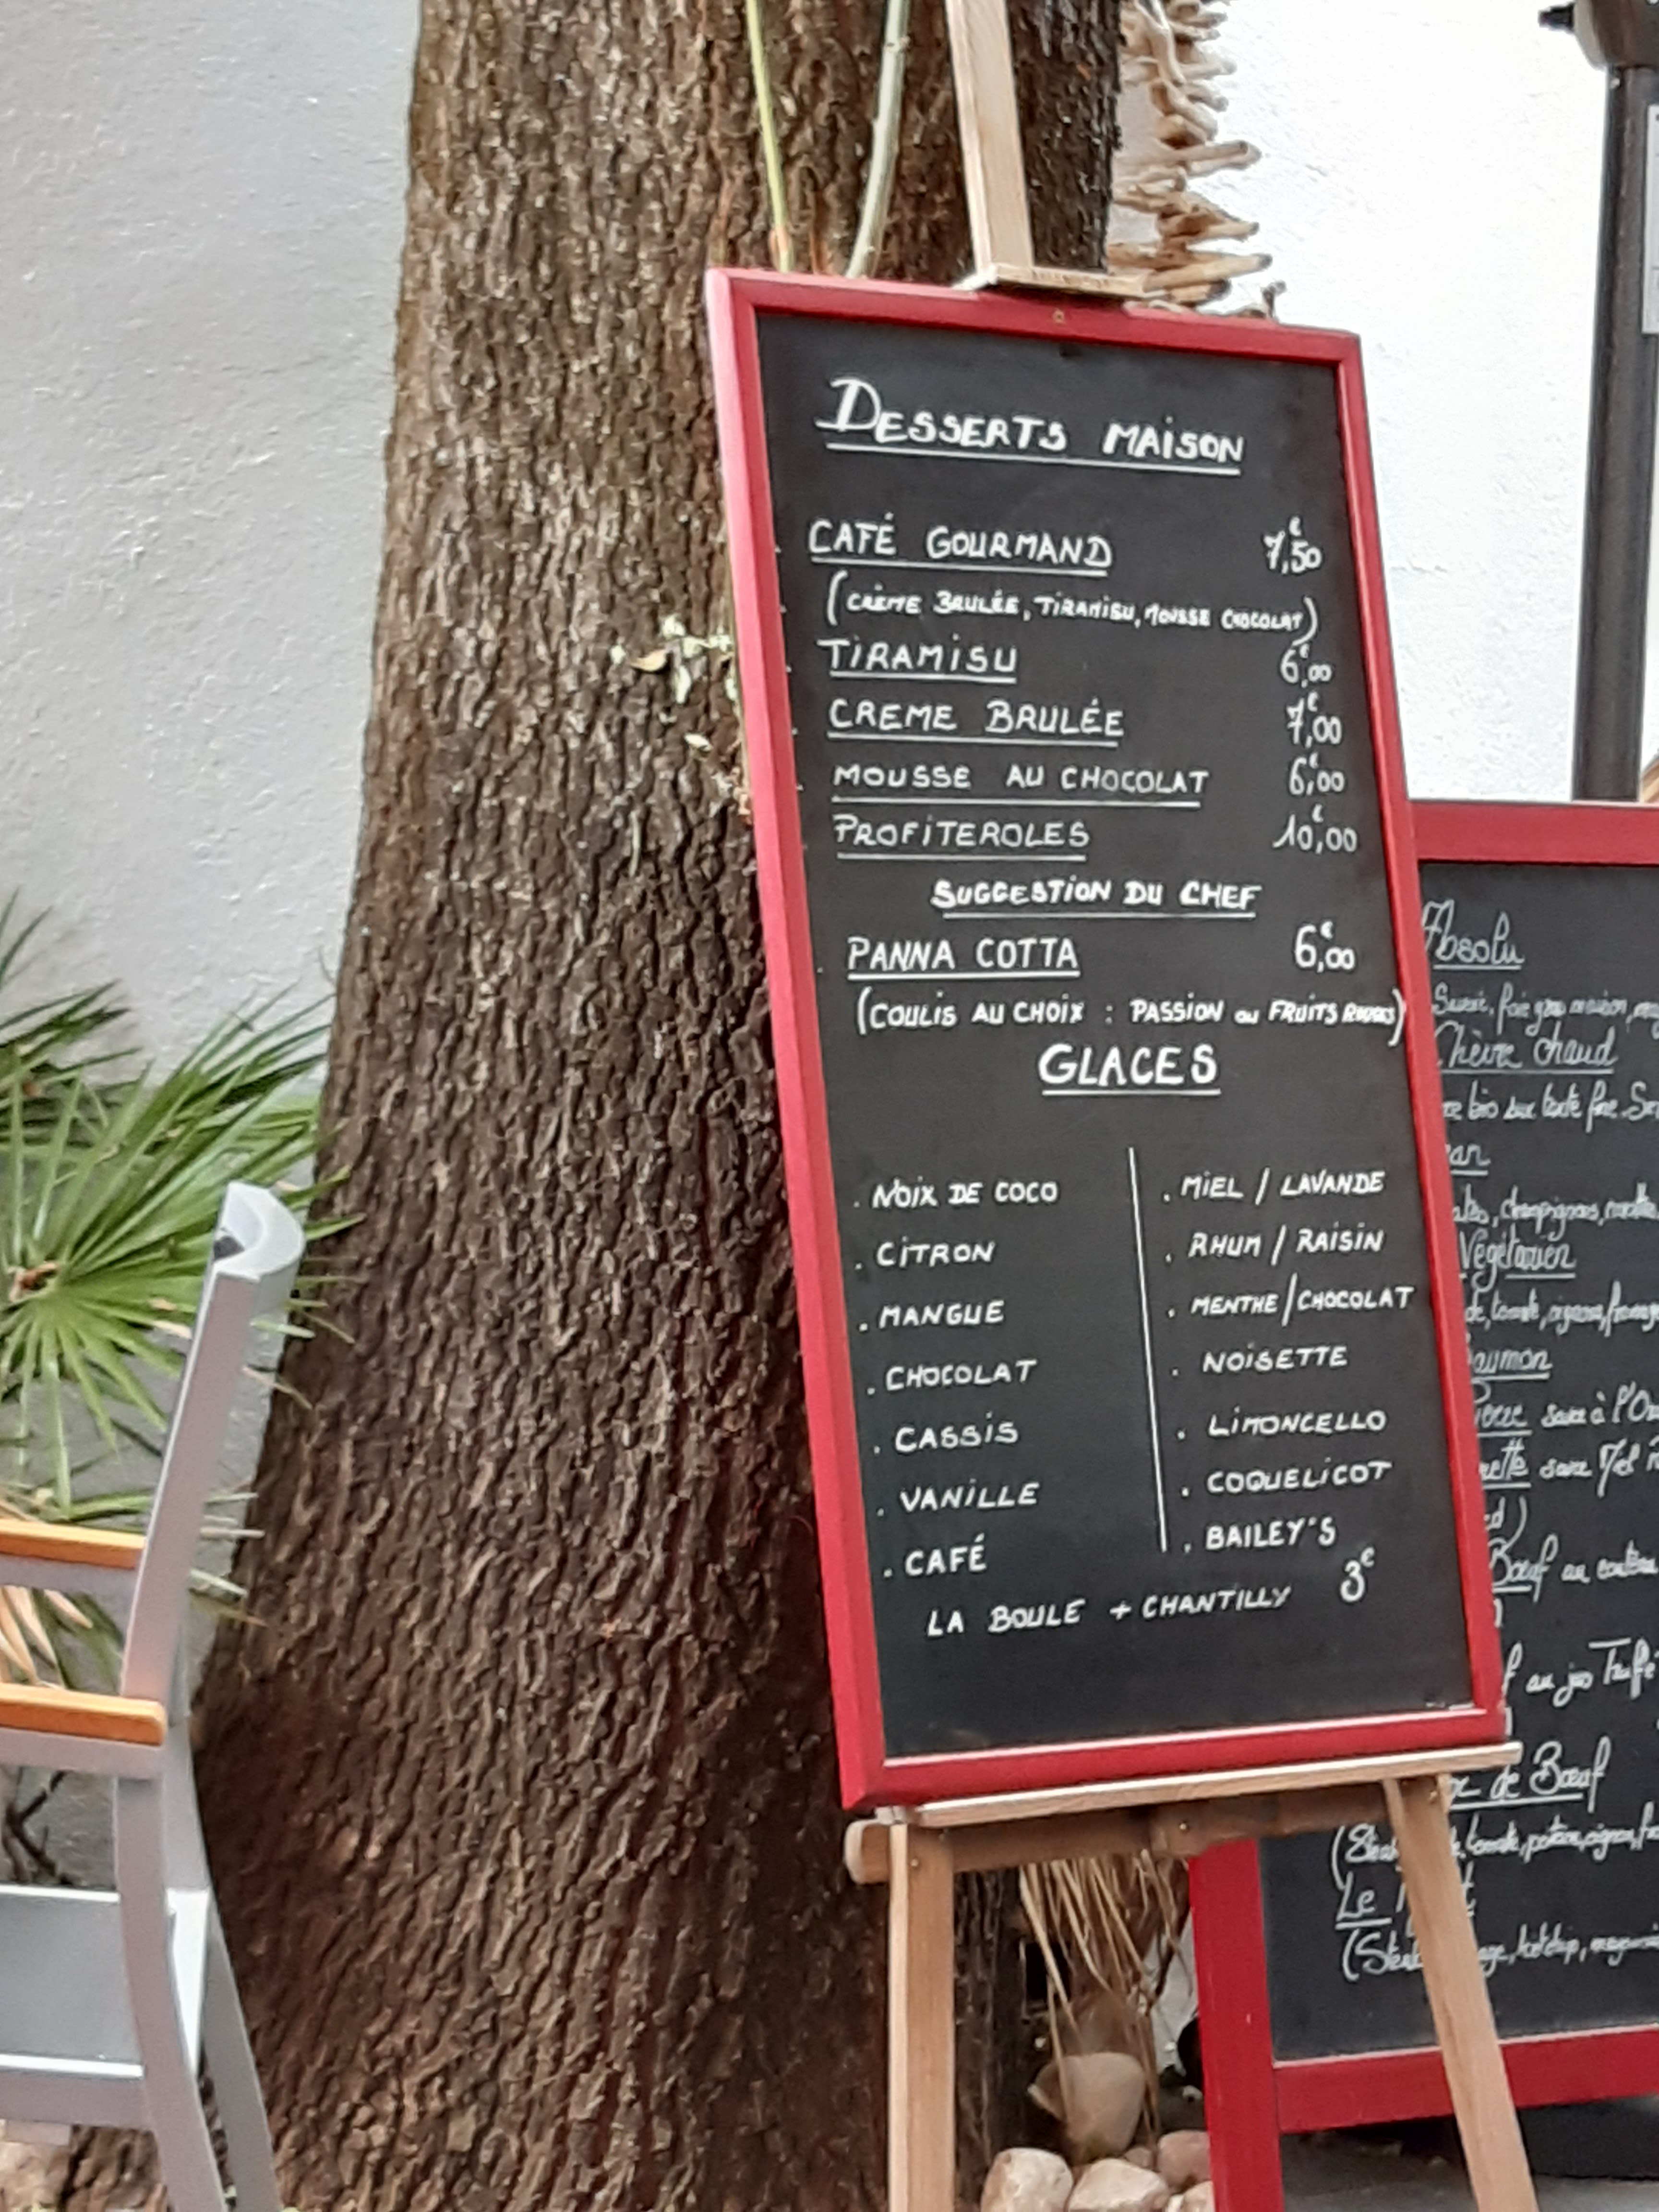 DESSERTS MAISON
CAFÉ GOURMAND 7,50€
(CRÈME BRULÉE, TIRAMISU, MOUSSE CHOCOLAT)
TIRAMISU 6,00€
CREME BRULÉE 7,00€
MOUSSE AU CHOCOLAT 6,00€
PROFITEROLES 10,00€
SUGGESTION DU CHEF
PANNA COTTA 6,00€
(COULIS AU CHOIX : PASSION ou FRUITS ROUGES)
GLACES
. NOIX DE COCO
. CITRON
. MANGUE
. CHOCOLAT
. CASSIS
. VANILLE
. CAFÉ
. MIEL / LAVANDE
. RHUM / RAISIN
. MENTHE/CHOCOLAT
. NOISETTE
. LIMONCELLO
. COQUELICOT
. BAILEY'S
LA BOULE + CHANTILLY 3€
Absolu
foie gras maison,
Chèvre chaud
bio sur tarte fine.
champignons,
Végétarien
tomate, oignons,
sauce à
sauce Miel
Boeuf au
au jus Truffe
de Boeuf
tomate, oignon,
Le
ketchup,